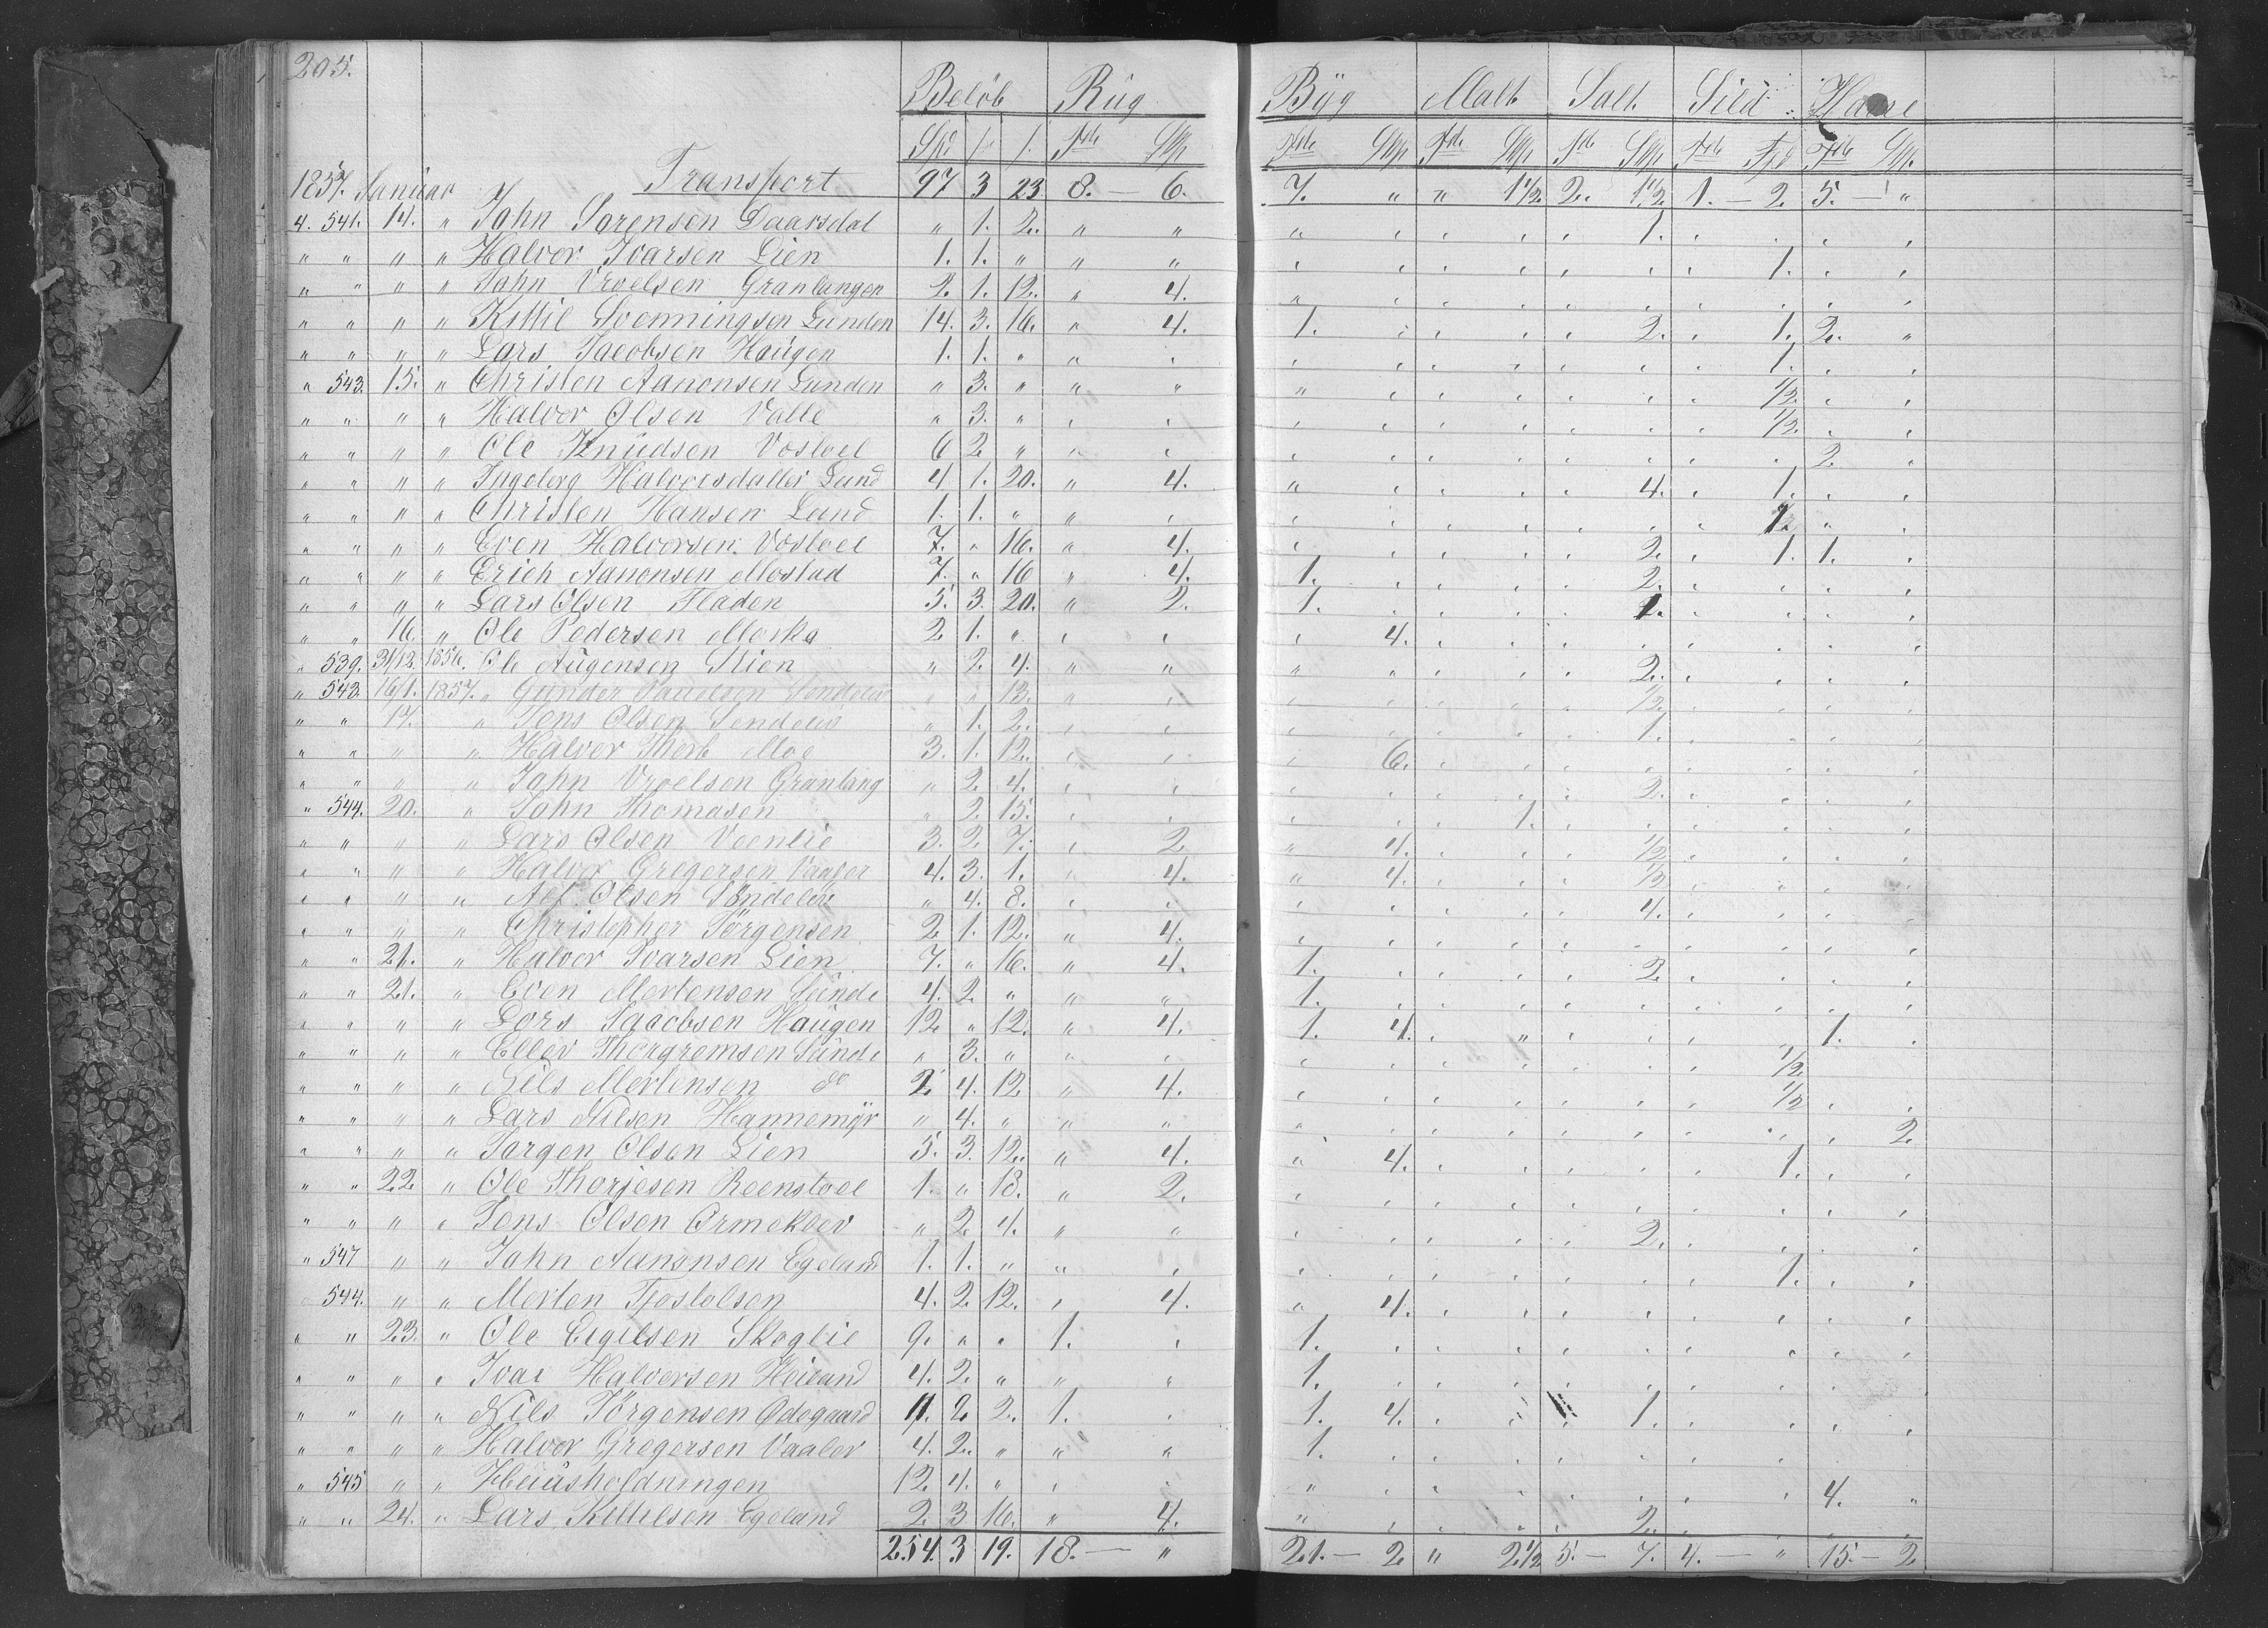 205.
Beløb Rüg Byg Malt Salt Sild Havre
Spd Tdr Tdr Tdr Tdr
1857. Januar Transport 97 3 23 8. — 6. 7. " " 1 1/2. 2. 1 1/2. 1. — 2. 5. — "
4. 541. 14. " John Sorensen Daarsdal " 1. 2. " " " 1.
" " " " Halvor Ivarsen Lien 1. 1. " " " 1.
" " " " John Vroelsen Granlangen 2. 1. 12. " 4. "
" " " " Kittil Svenningsen Lunden 14. 3. 16. " 4. 1. 2. 1. 2. "
" " " " Lars Jacobsen Haügen 1. 1. " " 1.
" 543. 15. " Christen Aanonsen Lunden " 3. " " " " 1/2.
" " " " Halvor Olsen Valle " 3. " 1/2.
" " " " Ole Knüdsen Vosloel 6 2 " 2.
" " " " Ingeborg Halvorsdatter Lund 4 1. 20. " 4. " 4. 1.
" " " " Christen Hansen Lund 1. 1. " "
" " " " Even Halvorsen Vosloel 7. " 16. " 4. 2. 1. 1.
" " " " Erich Aanonsen Mostad 7. " 16 " 4. 1. 2.
" " " " Lars Olsen Fladen 5. 3. 20. " 2. 1.
" " 16. " Ole Pedersen 2 1. " 4.
" 539. 31/12. 1856. Ole Aügensen Stien " 2. 4. " " " 2.
" 543. 16/1. 1857. " Gunder " " 13. " 1/2.
" " 17. " Jens Olsen Søndeløv " 1. 2. 1.
" " " " Halvor Thorb Moe 3. 1. 12. 6.
" " " " John Vroelsen Granlang " 2. 4. 2.
" 544. 20. " John Thomasen " 2. 15. 1.
" " " " Lars Olsen Veenlie 3. 2. 7. 2 " 4. 1/2
" " " " Halvor Gregersen Vaaler 4. 3. 1. 4. " 4. 1/2
" " " " Alf Olsen Søndeløv " 4. 8. 4.
" " " " Christopher Jörgensen 2. 1. 12. " 4.
" " 21. " Halvor Ivarsen Lien 7. " 16. " 4. 1. 2.
" " 21. " Even Mortensen Sünde 4. 2. " " " 1.
" " " " Lars Jacobsen Haügen 12 " 12. " 4. 1. 4. 1.
" " " " Ellev Thorgremsen Sünde " 3. " " 1/2.
" " " " Nils Mortensen do 2. 4. 12 " 4. 1/2
" " " " Lars Nilsen Hannemÿr " 4. " " " 2
" " " " Jorgen Olsen Lien 5. 3. 12. " 4. " 4. 1.
" " 22. " Ole Thorjesen Reenstoel 1. " 18. " 2.
" " " " Jens Olsen Ormeklev " 2. 4. " " 2.
" 547 " " John Aanonsen Egeland 1. 1. " " 1.
" 544. " " Morten Tjostolsen 4. 2. 12. 4. " 4.
" " 23. " Ole Eigilsen Skoglie 9. " " 1. 1.
" " " " Ivar Halvorsen Heiland 4. 2. " " " 1.
" " " " Nils Jörgensen Ødegaard 11. 2. 2. 1. 1. 4. 1.
" " " " Halvor Gregersen Vaaler 4. 2. " " " 1.
" 545 " " Hüüsholdningen 12. 4. " " 4. "
" " 24. " Lars Kittilsen Egeland 2. 3 16. " 4. " 2.
254. 3 19. 18. — " 21. — 2. " 2 1/2 5. — 7. 4. — " 15. — 2